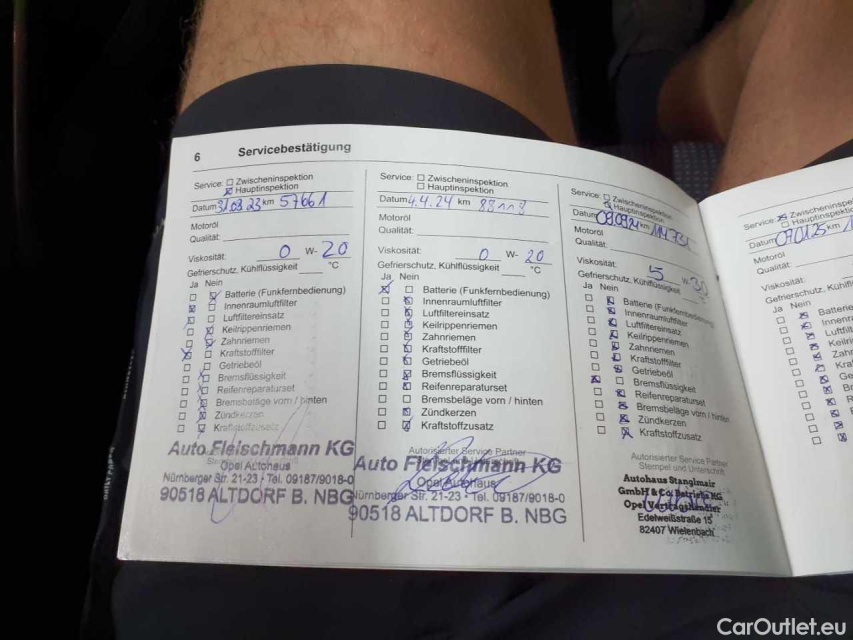 6 Servicebestätigung
Service: Zwischeninspektion
Hauptinspektion
Datum 31.08.23 km 57661
Motoröl
Qualität:
Viskosität: 0 W- 20
Gefrierschutz, Kühlflüssigkeit °C
Ja Nein
Batterie (Funkfernbedienung)
Innenraumluftfilter
Luftfiltereinsatz
Keilrippenriemen
Zahnriemen
Kraftstofffilter
Getriebeöl
Bremsflüssigkeit
Reifenreparaturset
Bremsbeläge vorn / hinten
Zündkerzen
Kraftstoffzusatz
Auto Fleischmann KG
Opel Autohaus
Nürnberger Str. 21-23 · Tel. 09187/9018-0
90518 ALTDORF B. NBG
Service: Zwischeninspektion
Hauptinspektion
Datum 4.4.24 km
Motoröl
Qualität:
Viskosität: 0 W- 20
Gefrierschutz, Kühlflüssigkeit °C
Ja Nein
Batterie (Funkfernbedienung)
Innenraumluftfilter
Luftfiltereinsatz
Keilrippenriemen
Zahnriemen
Kraftstofffilter
Getriebeöl
Bremsflüssigkeit
Reifenreparaturset
Bremsbeläge vorn / hinten
Zündkerzen
Kraftstoffzusatz
Autorisierter Service Partner
Auto Fleischmann KG
Opel Autohaus
Nürnberger Str. 21-23 · Tel. 09187/9018-0
90518 ALTDORF B. NBG
Service: Zwischeninspektion
Hauptinspektion
Datum 09.09.24 km
Motoröl
Qualität:
Viskosität: 5 W- 30
Gefrierschutz, Kühlflüssigkeit
Ja Nein
Batterie (Funkfernbedienung)
Innenraumluftfilter
Luftfiltereinsatz
Keilrippenriemen
Zahnriemen
Kraftstofffilter
Getriebeöl
Bremsflüssigkeit
Reifenreparaturset
Bremsbeläge vorn / hinten
Zündkerzen
Kraftstoffzusatz
Autorisierter Service Partner
Stempel und Unterschrift
Autohaus Stanglmair
GmbH & Co. Betriebs KG
Opel Vertragshändler
Edelweißstraße 15
82407 Wielenbach
Service: Zwischeninspektion
Hauptinspektion
Datum km
Motoröl
Qualität:
Viskosität:
Ja Nein
CarOutlet.eu